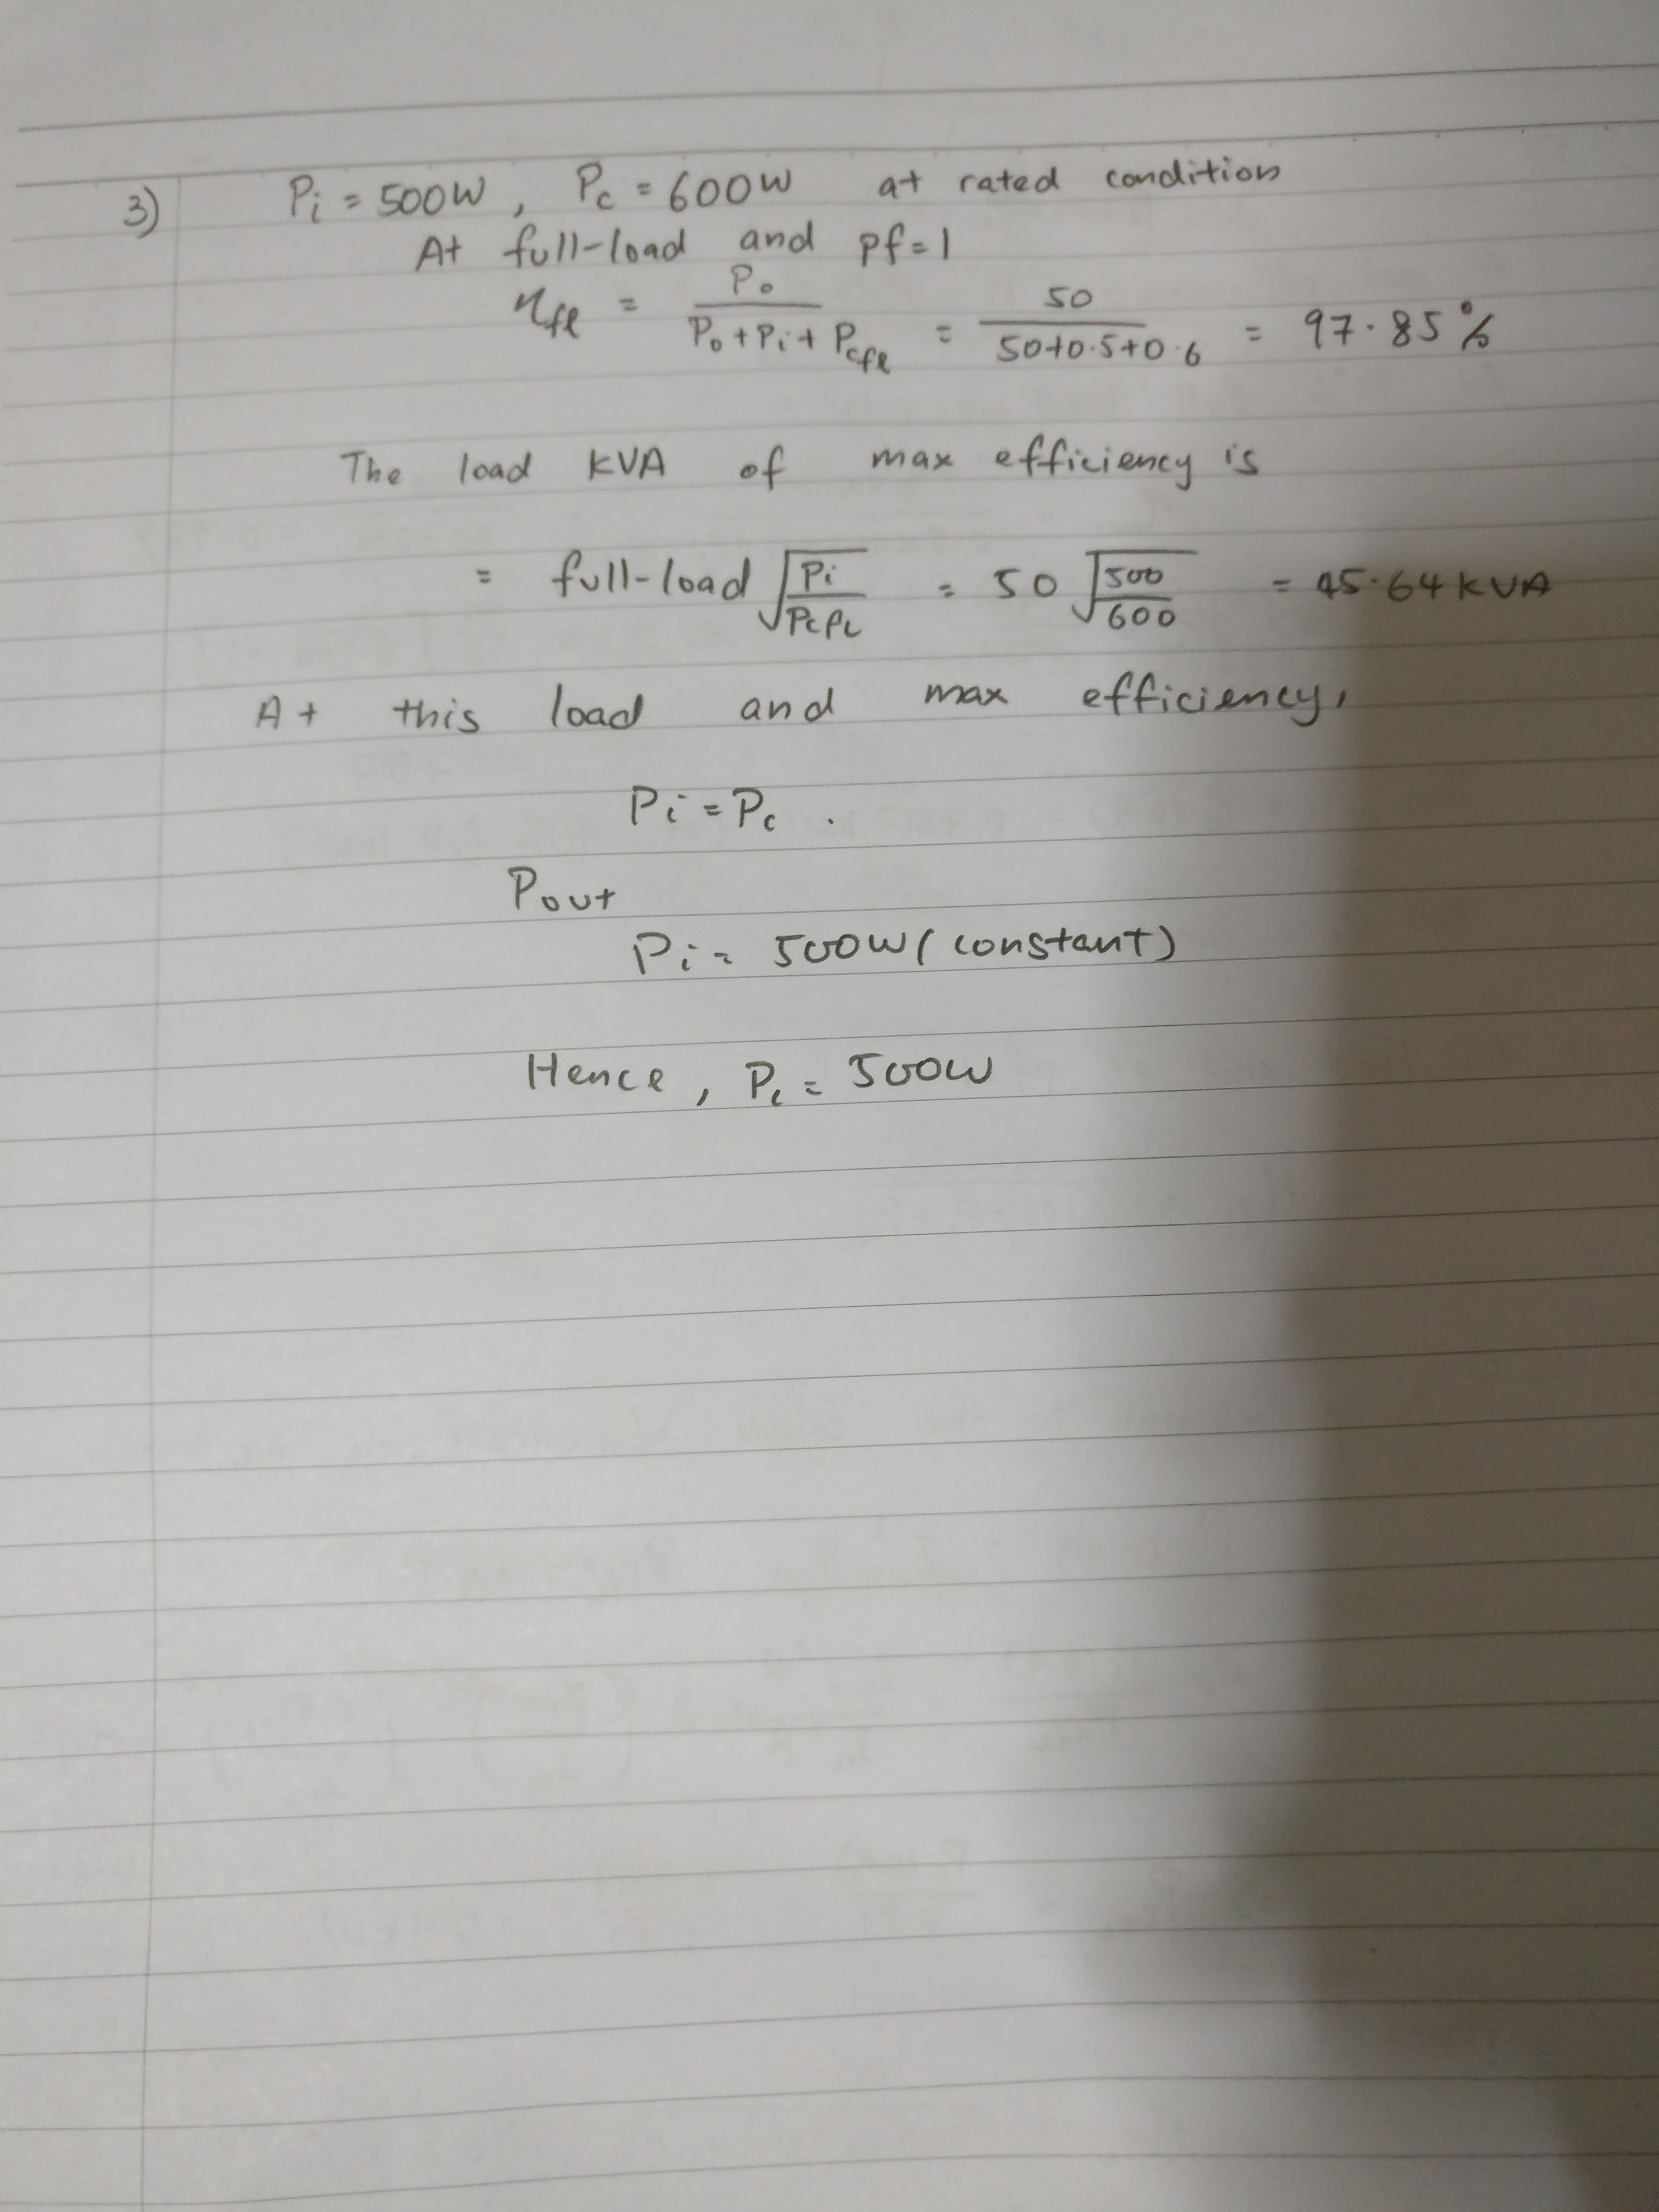 3) Pi = 500W, Pc = 600W at rated condition
At full-load and pf=1
ηfl = Po / Po+Pi+Pcfl = 50 / 50+0.5+0.6 = 97.85%
The load KVA of max efficiency is
= full-load √(Pi / PcFL) = 50 √(500 / 600) = 45.64 KVA
At this load and max efficiency,
Pi = Pc .
Pout
Pi = 500W (constant)
Hence, Pc = 500W